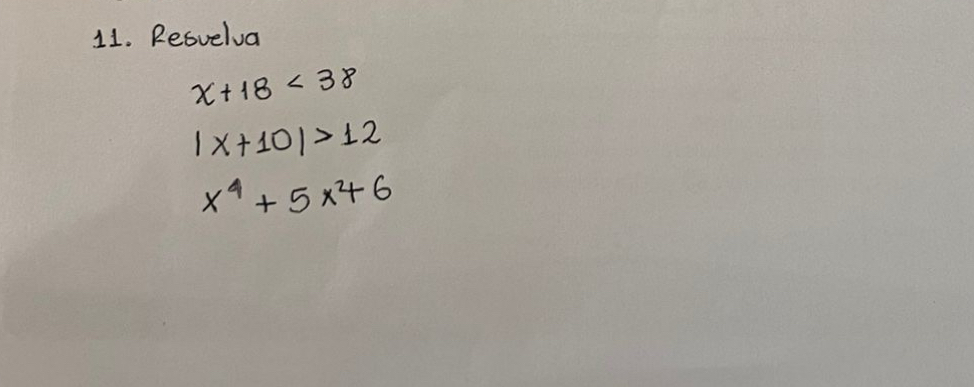 11. Resuelva
x+18 < 38
|x+10|>12
x⁴ + 5x²+6